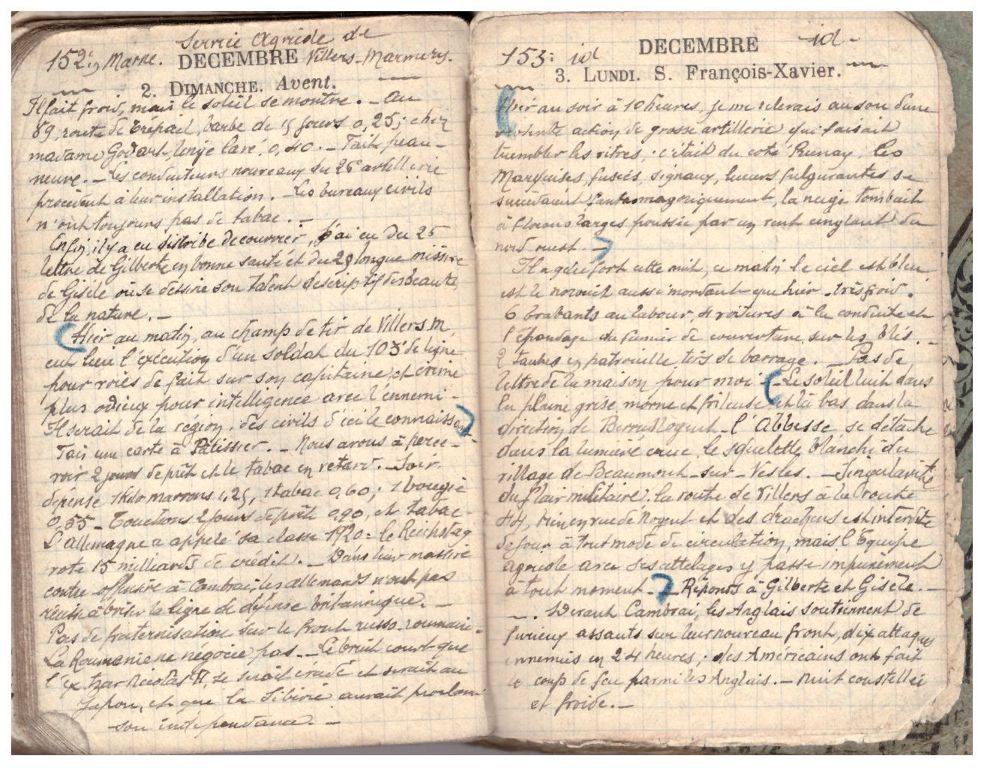 Service Agricole de
152e; Marne. DECEMBRE Villers-Marmery.
2. DIMANCHE. Avent.
Il fait froid, mais le soleil se montre. — Au
89, route de Trépail, barbe de 15 jours 0,25; chez
madame Godart, linge lavé, 0,40. — Fait peau
neuve. — Les conducteurs nouveaux du 25e artillerie
procèdent à leur installation. — Les bureaux civils
n'ont toujours pas de tabac. —
Enfin, il y a eu distribé de courrier, j'ai eu du 25
lettre de Gilberte en bonne santé et du 29 longue missive
de Gisèle où se dessine son talent descriptif des beautés
de la nature. —
Hier au matin, au champ de tir de Villers M.
eut lieu l'exécution d'un soldat du 103e de ligne
pour voies de fait sur son capitaine, et crime
plus odieux pour intelligence avec l'ennemi —
Il serait de la région, des civils d'ici le connaissent
Fais une carte à Pâtissier. — Nous avons à perce-
voir 2 jours de prêt et le tabac en retard. — Soir
dépense 1 kilo marrons 1,25, 1 tabac 0,60; 1 bougie
0,35 — Touchons 2 jours de prêt 0,90, et tabac —
L'allemagne a appelé sa classe 1920: le Reichstag
vote 15 milliards de crédit. — Dans leur massive
contre offensive à Cambrai, les allemands n'ont pas
réussi à briser la ligne de défense britannique. —
Pas de fraternisation sur le front russo-roumain-
La Roumanie ne négocie pas. — Le bruit court que
l'ex tzar Nicolas II, se serait évadé et serait au
Japon, et que la Sibérie aurait proclamé
son indépendance. —
153: id DECEMBRE id —
3. LUNDI. S. François-Xavier.
Hier au soir à 10 heures, je me relevais au son d'une
violente action de grosse artillerie qui faisait
trembler les vitres, c'était du coté Prunay, les
Marquises, fusées, signaux, lueurs fulgurantes se
succédaient fantasmagoriquement, la neige tombait
à flocons larges poussée par un vent cinglant du
nord ouest. —
Il a gelé fort cette nuit, ce matin le ciel est bleu
et le noroit aussi mordant que hier — très froid.
6 brabants au labour, 4 voitures à la conduite et
l'épandage du fumier de couverture sur les blés. —
2 tanks en patrouille tirs de barrage. Pas de
lettre de la maison pour moi — Le soleil luit dans
la plaine grise, morne et frileuse et là bas dans la
direction de Berru Nogent-l'Abbesse se détache
dans la lumière crue, le squelette blanchi du
village de Beaumont-sur-Vesles. — Singularité
du flair militaire: la route de Villers à la route
44, bien en vue de Nogent et des drachens est interdite
de jour à tout mode de circulation, mais l'équipe
agricole avec ses attelages y passe impunément
à tout moment. — Réponds à Gilberte et Gisèle. —
— Devant Cambrai, les Anglais soutiennent de
furieux assauts sur leur nouveau front, dix attaques
ennemies en 24 heures; des Américains ont fait
le coup de feu parmi les Anglais. — Nuit constellée
et froide. —